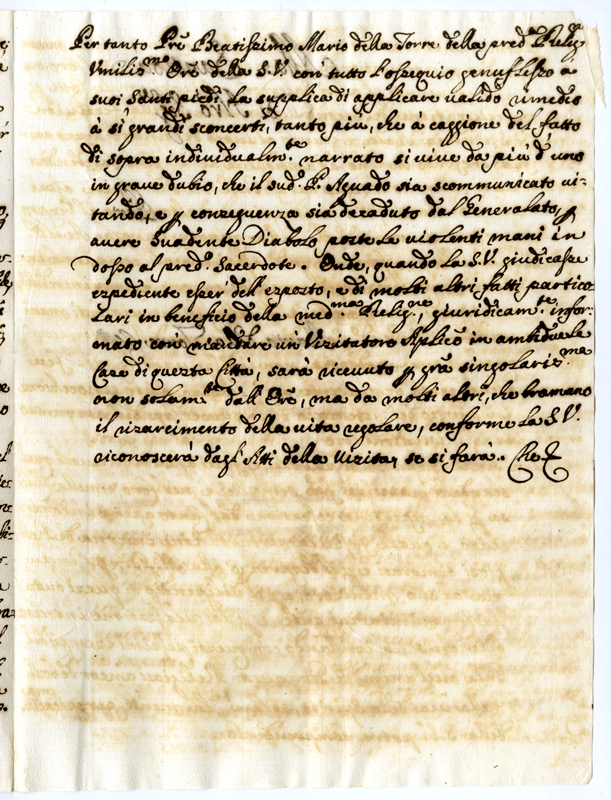 Per tanto Prẽ Beatissimo Mario della Torre della pred.ª Relig.ⁿᵉ
Umilis.ᵐᵒ Orẽ della S.V. con tutto l'ossequio genuflesso a
suoi Santi piedi la supplica di applicare valido rimedio
à si grandi sconcerti, tanto più, che à caggione del fatto
di sopra individualm.ᵗᵉ narrato si vive da più d'uno
in grave dubio, che il sud.º P. Aguado sia scomunicato vi-
tando, e p conseguenza sia decaduto dal Generalato, p
avere Suadente Diabolo poste le violenti mani in
dosso al pred.º Sacerdote. Onde, quando la S.V. giudicasse
espediente esser dell'esposto, e di molti altri fatti partico-
lari in beneficio della med.ᵐᵃ Relig.ⁿᵉ, giuridicam.ᵗᵉ infor-
mato con mandare un Visitatore Aplicõ in amtidue le
Case di questa Città, sarà ricevuto p grã singolaris.ᵐᵃ
non solam.ᵗᵉ dall'Orẽ, ma da molti altri, che bramano
il risarcimento della vita regolare, conforme la S.V.
riconoscerà dagl'Atti della Visita, se si farà. Che